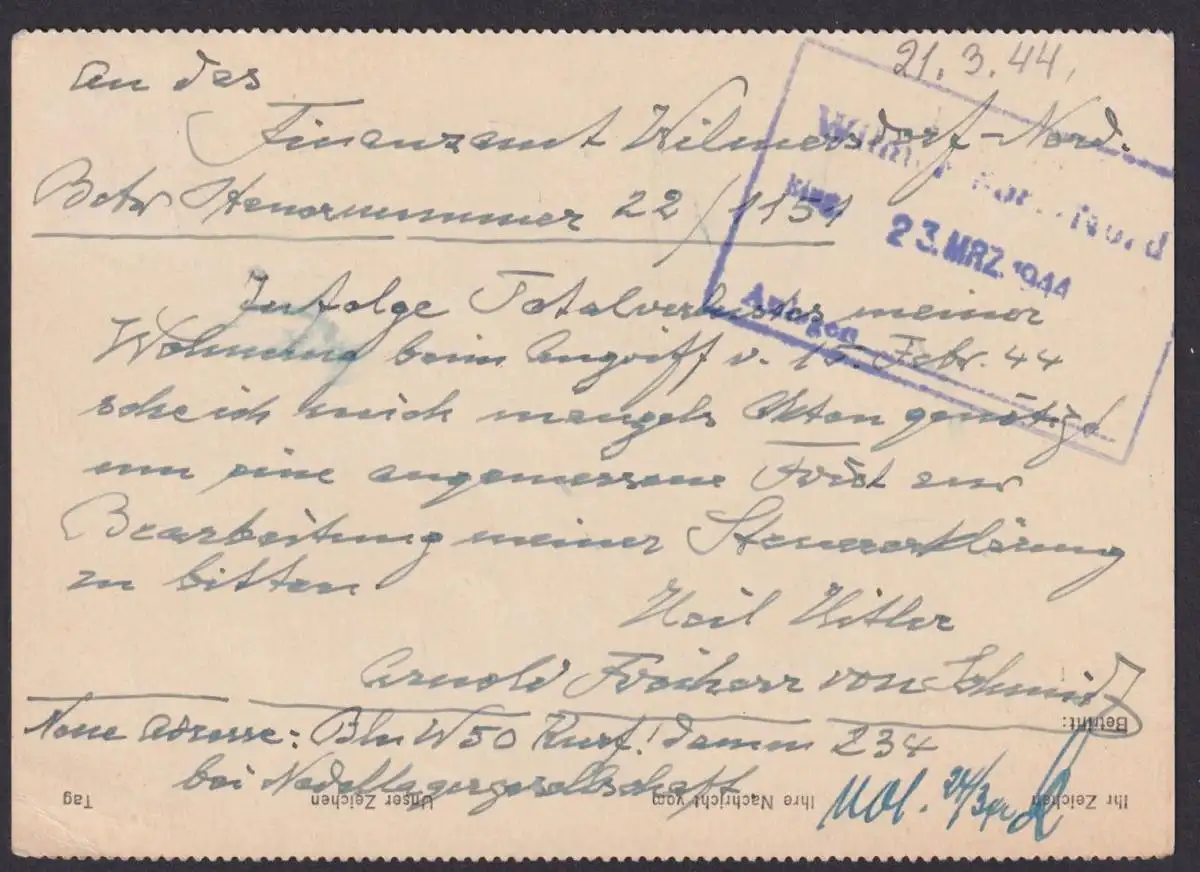 21.3.44.
An das
Finanzamt Wilmersdorf-Nord.
Betr Steuernummer 22/1151
Nord
23. MRZ. 1944
Anlagen
Infolge Totalverlustes meiner
Wohnung beim Angriff v. 15. Febr. 44
sehe ich mich mangels Akten genötigt
um eine angemessene Frist zur
Bearbeitung meiner Steuererklärung
zu bitten
Heil Hitler
Arnold Freiherr von
Neue Adresse: Bln W50 Kurf!damm 234
bei
Betrifft:
Ihr Zeichen
Ihre Nachricht vom
Unser Zeichen
Tag
24/3